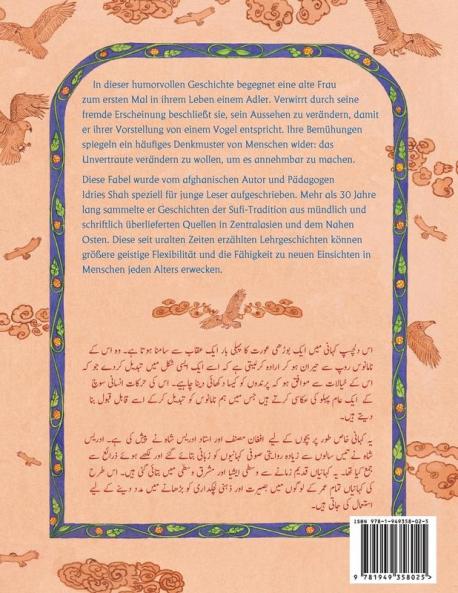 In dieser humorvollen Geschichte begegnet eine alte Frau
zum ersten Mal in ihrem Leben einem Adler. Verwirrt durch seine
fremde Erscheinung beschließt sie, sein Aussehen zu verändern, damit
er ihrer Vorstellung von einem Vogel entspricht. Ihre Bemühungen
spiegeln ein häufiges Denkmuster von Menschen wider: das
Unvertraute verändern zu wollen, um es annehmbar zu machen.
Diese Fabel wurde vom afghanischen Autor und Pädagogen
Idries Shah speziell für junge Leser aufgeschrieben. Mehr als 30 Jahre
lang sammelte er Geschichten der Sufi-Tradition aus mündlich und
schriftlich überlieferten Quellen in Zentralasien und dem Nahen
Osten. Diese seit uralten Zeiten erzählten Lehrgeschichten können
größere geistige Flexibilität und die Fähigkeit zu neuen Einsichten in
Menschen jeden Alters erwecken.
اس دلچسپ کہانی میں ایک بوڑھی عورت کا پہلی بار ایک عقاب سے سامنا ہوتا ہے۔ وہ اس کے
نامانوس روپ سے حیران ہو کر ارادہ کر لیتی ہے کہ اسے ایک ایسی شکل میں تبدیل کر دے جو کہ
اس کے خیالات سے موافق ہو کہ پرندوں کو کیسا دکھائی دینا چاہیے۔ اس کی حرکات انسانی سوچ
کے ایک عام پہلو کی عکاسی کرتی ہیں جس میں ہم نامانوس کو تبدیل کر کے اسے قابلِ قبول بنا
دیتے ہیں۔
یہ کہانی خاص طور پر بچوں کے لیے افغان مصنف اور استاد ادریس شاہ نے پیش کی ہے۔ ادریس
شاہ نے تیس سالوں سے زیادہ روایتی صوفی کہانیوں کو زبانی بتائے گئے اور لکھے ہوئے ذرائع سے
جمع کیا تھا۔ یہ کہانیاں قدیم زمانے سے وسطی ایشیا اور مشرقِ وسطیٰ میں بتائی گئی ہیں۔ اس طرح کی
کہانیاں تمام عمر کے لوگوں میں بصیرت اور ذہنی لچکداری کو بڑھانے میں مدد دینے کے لیے
استعمال کی جاتی ہیں۔
ISBN 978-1-949358-02-5
9 781949 358025